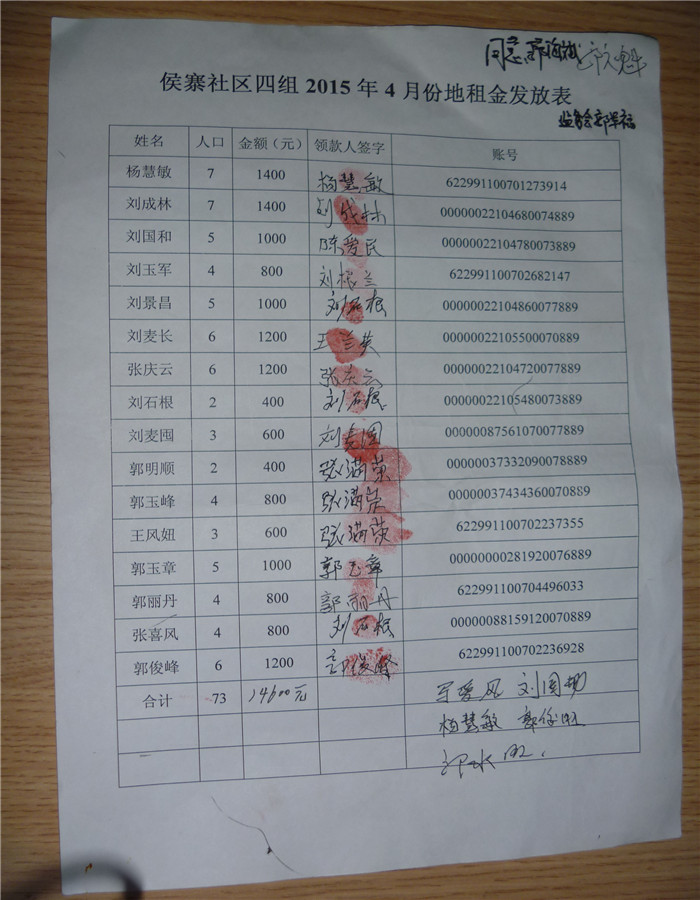 同意
侯寨社区四组 2015 年 4 月份地租金发放表
姓名 人口 金额（元） 领款人签字 账号
杨慧敏 7 1400 杨慧敏 622991100701273914
刘成林 7 1400 刘成林 00000022104680074889
刘国和 5 1000 陈爱民 00000022104780073889
刘玉军 4 800 刘根兰 622991100702682147
刘景昌 5 1000 刘石根 00000022104860077889
刘麦长 6 1200 王兰英 00000022105500070889
张庆云 6 1200 张庆云 00000022104720077889
刘石根 2 400 刘石根 00000022105480073889
刘麦囤 3 600 刘麦囤 00000087561070077889
郭明顺 2 400 张满荣 00000037332090078889
郭玉峰 4 800 张满荣 00000037434360070889
王风妞 3 600 张满荣 622991100702237355
郭玉章 5 1000 郭玉章 00000000281920076889
郭丽丹 4 800 郭丽丹 622991100704496033
张喜风 4 800 刘石根 00000088159120070889
郭俊峰 6 1200 郭俊峰 622991100702236928
合计 73 14600元
杨慧敏